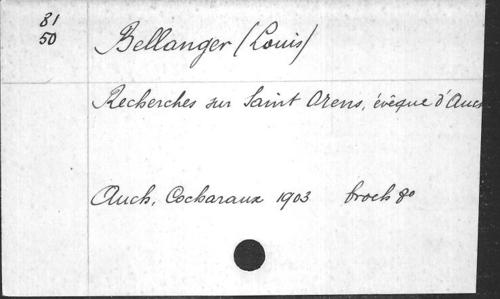 81
50
Bellanger (Louis)
Recherches sur Saint Orens, évêque d'Auch
Auch, Cocharaux 1903 broch 8o